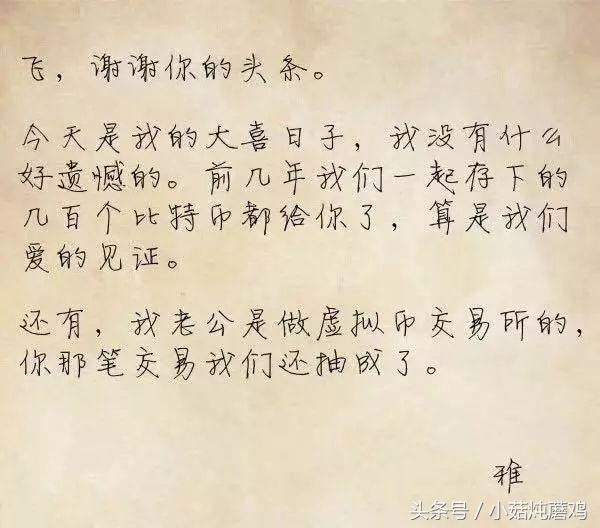 飞，谢谢你的头条。
今天是我的大喜日子，我没有什么
好遗憾的。前几年我们一起存下的
几百个比特币都给你了，算是我们
爱的见证。
还有，我老公是做虚拟币交易所的，
你那笔交易我们还抽成了。
雅
头条号／小菇炖蘑鸡